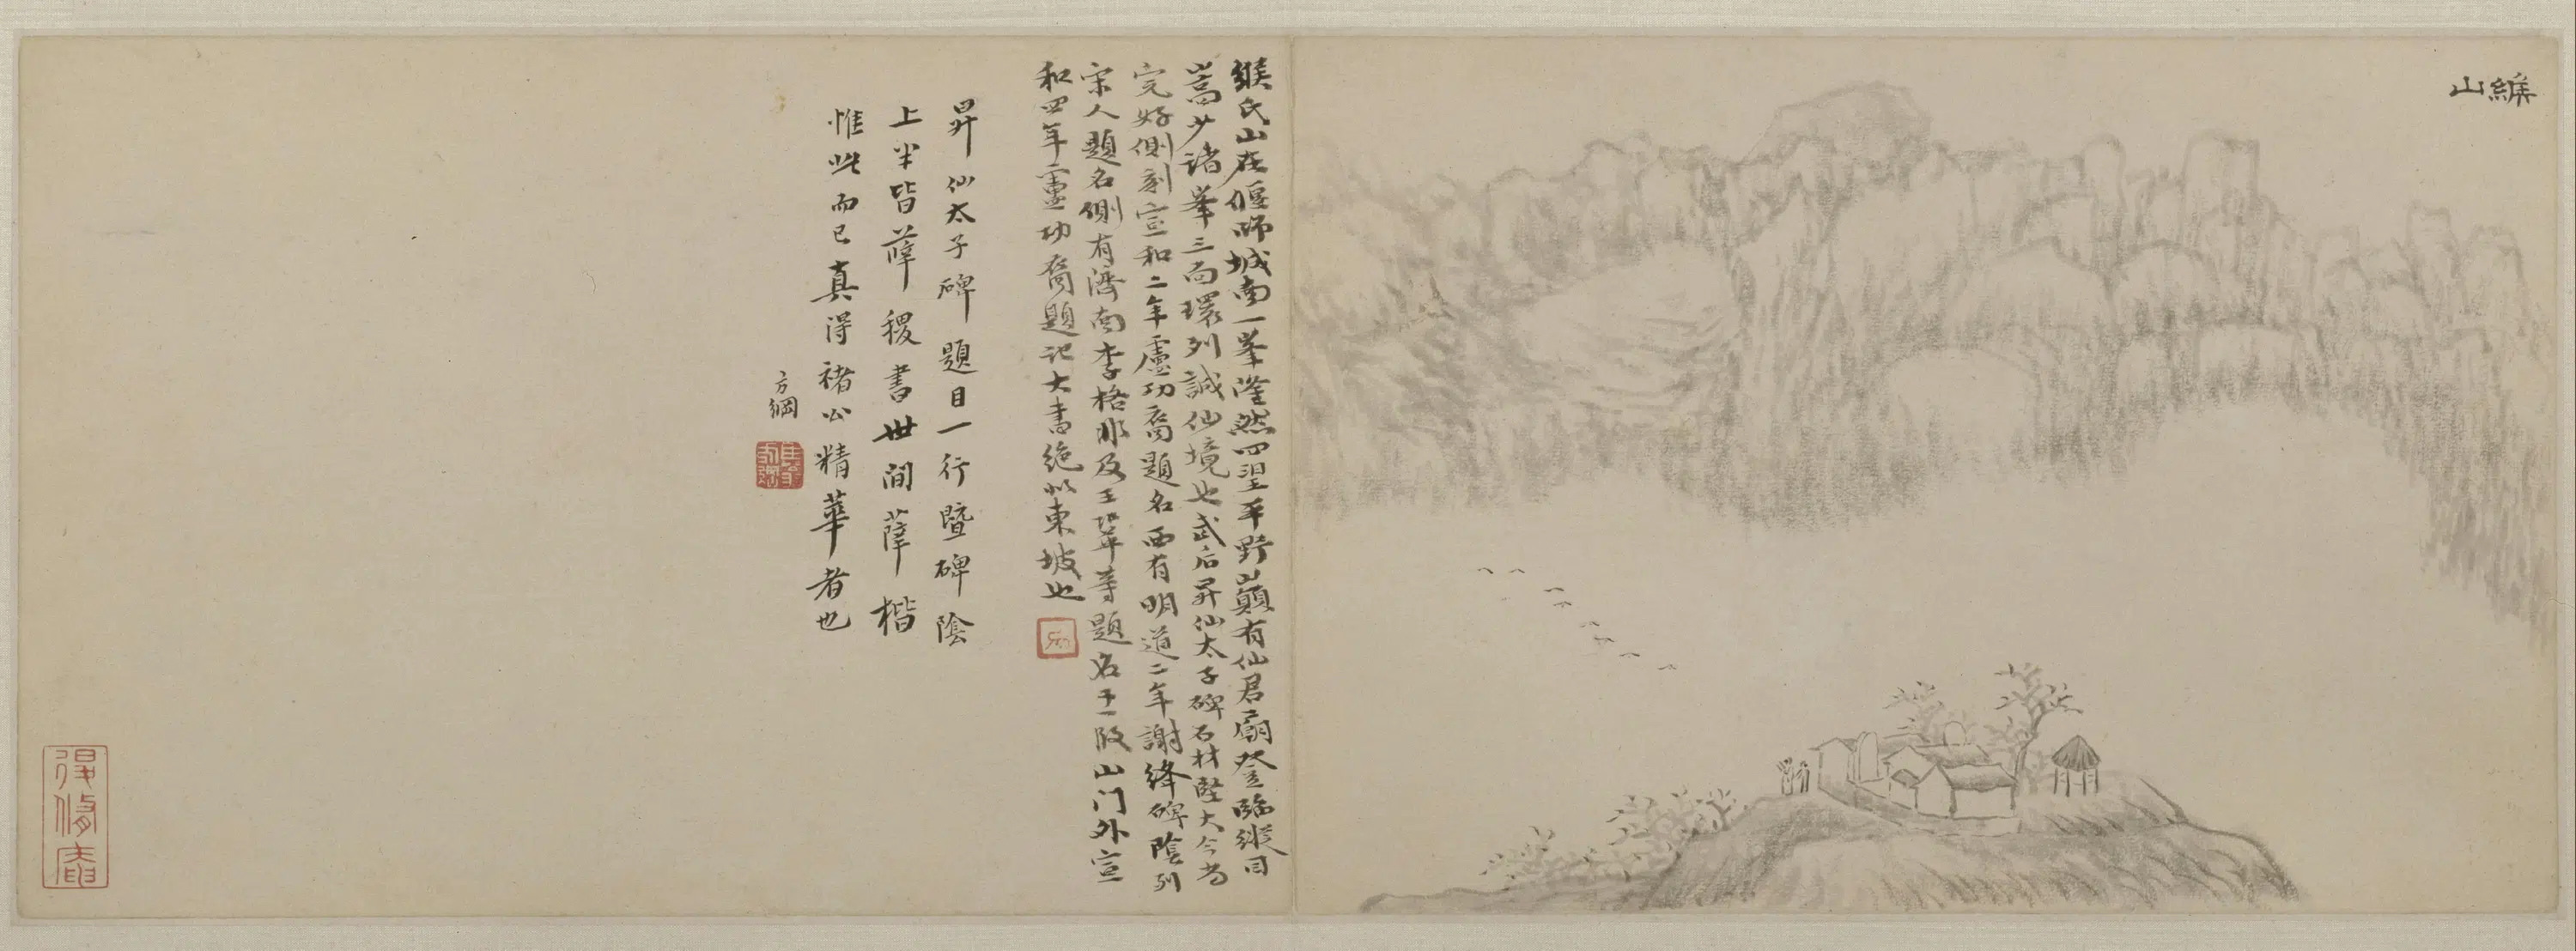 緱山
緱氏山在偃師城南一峯隆然四望平野山巔有仙君廟登臨縱目
嵩少諸峯三面環列誠仙境也武后昇仙太子碑石材堅大今尚
完好側刻宣和二年盧功裔題名西有明道二年謝絳碑陰列
宋人題名側有濟南李格非及王鞏等題名王一段山門外宣
和四年盧功裔題記大書絶似東坡也
昇仙太子碑題目一行暨碑陰
上半皆薛稷書世間薛楷
惟此而已真得褚公精華者也
方綱